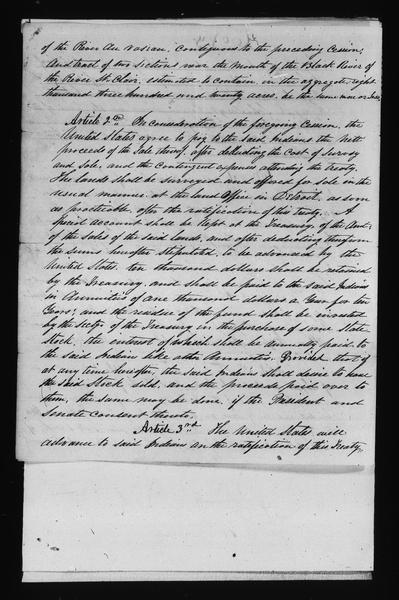 of the River Au vasseau, contiguous to the preceding Cession;
And tract of two sections near the mouth of the Black River of
the River St. Clair, estimated to contain, in the aggregate, eight
thousand three hundred and twenty acres, be the same more or less.
Article 2nd In consideration of the foregoing Cession, the
United States agree to pay to the said Indians the nett
proceeds of the sale thereof, after deducting the Cost of Survey
and sale, and the Contingent expenses attending the treaty.
The lands shall be surveyed and offered for sale in the
usual manner, at the land Office in Detroit, as soon
as practicable, after the ratification of this Treaty. A
special account shall be kept at the Treasury of the amt.
of the sales of the said lands, and after deducting therefrom
the sums hereafter stipulated, to be advanced by the
United States, ten thousand dollars shall be retained
by the Treasury, and shall be paid to the said Indians
in Annuities of one thousand dollars a Year for ten
Years; and the residue of the fund shall be invested
by the Secty. of the Treasury in the purchase of some State
Stock, the interest of which shall be annually paid to
the said Indians like other Annuities. Provided, that if
at any time hereafter, the said Indians shall desire to have
the said Stock sold, and the proceeds paid over to
them, the same may be done, if the President and
Senate consent thereto.
Article 3rd The United States will
advance to said Indians on the ratification of this Treaty,